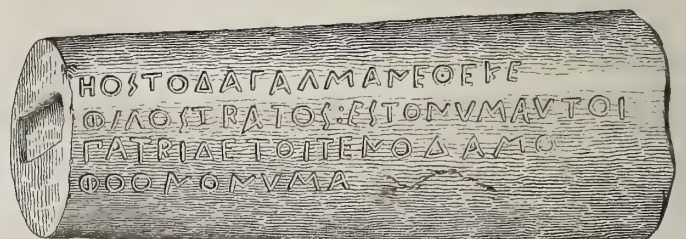 ΗΟΣΤΟΔΑΓΑΛΜΑΝΕΘΕΚΕ
ΦΙΛΟΣΤΡΑΤΟΣ:ΕΣΤΟΝΥΜΑΥΤΟΙ
ΠΑΤΡΙΔΕΤΟΙΤΕΝΟΔΑΜΟ
ΦΟΟΝΟΝΥΜΑ